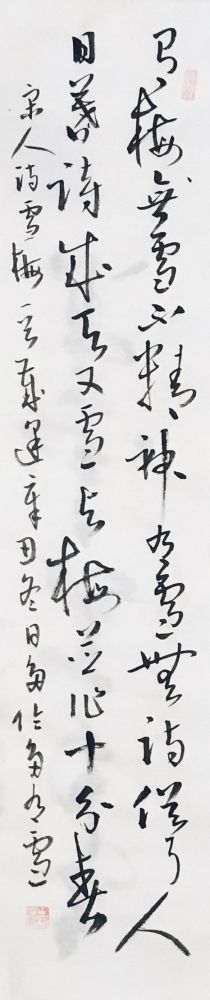 有梅無雪不精神有雪無詩俗了人
日暮詩成天又雪與梅並作十分春
宋人詩雪梅一首歲辛丑冬日有雪